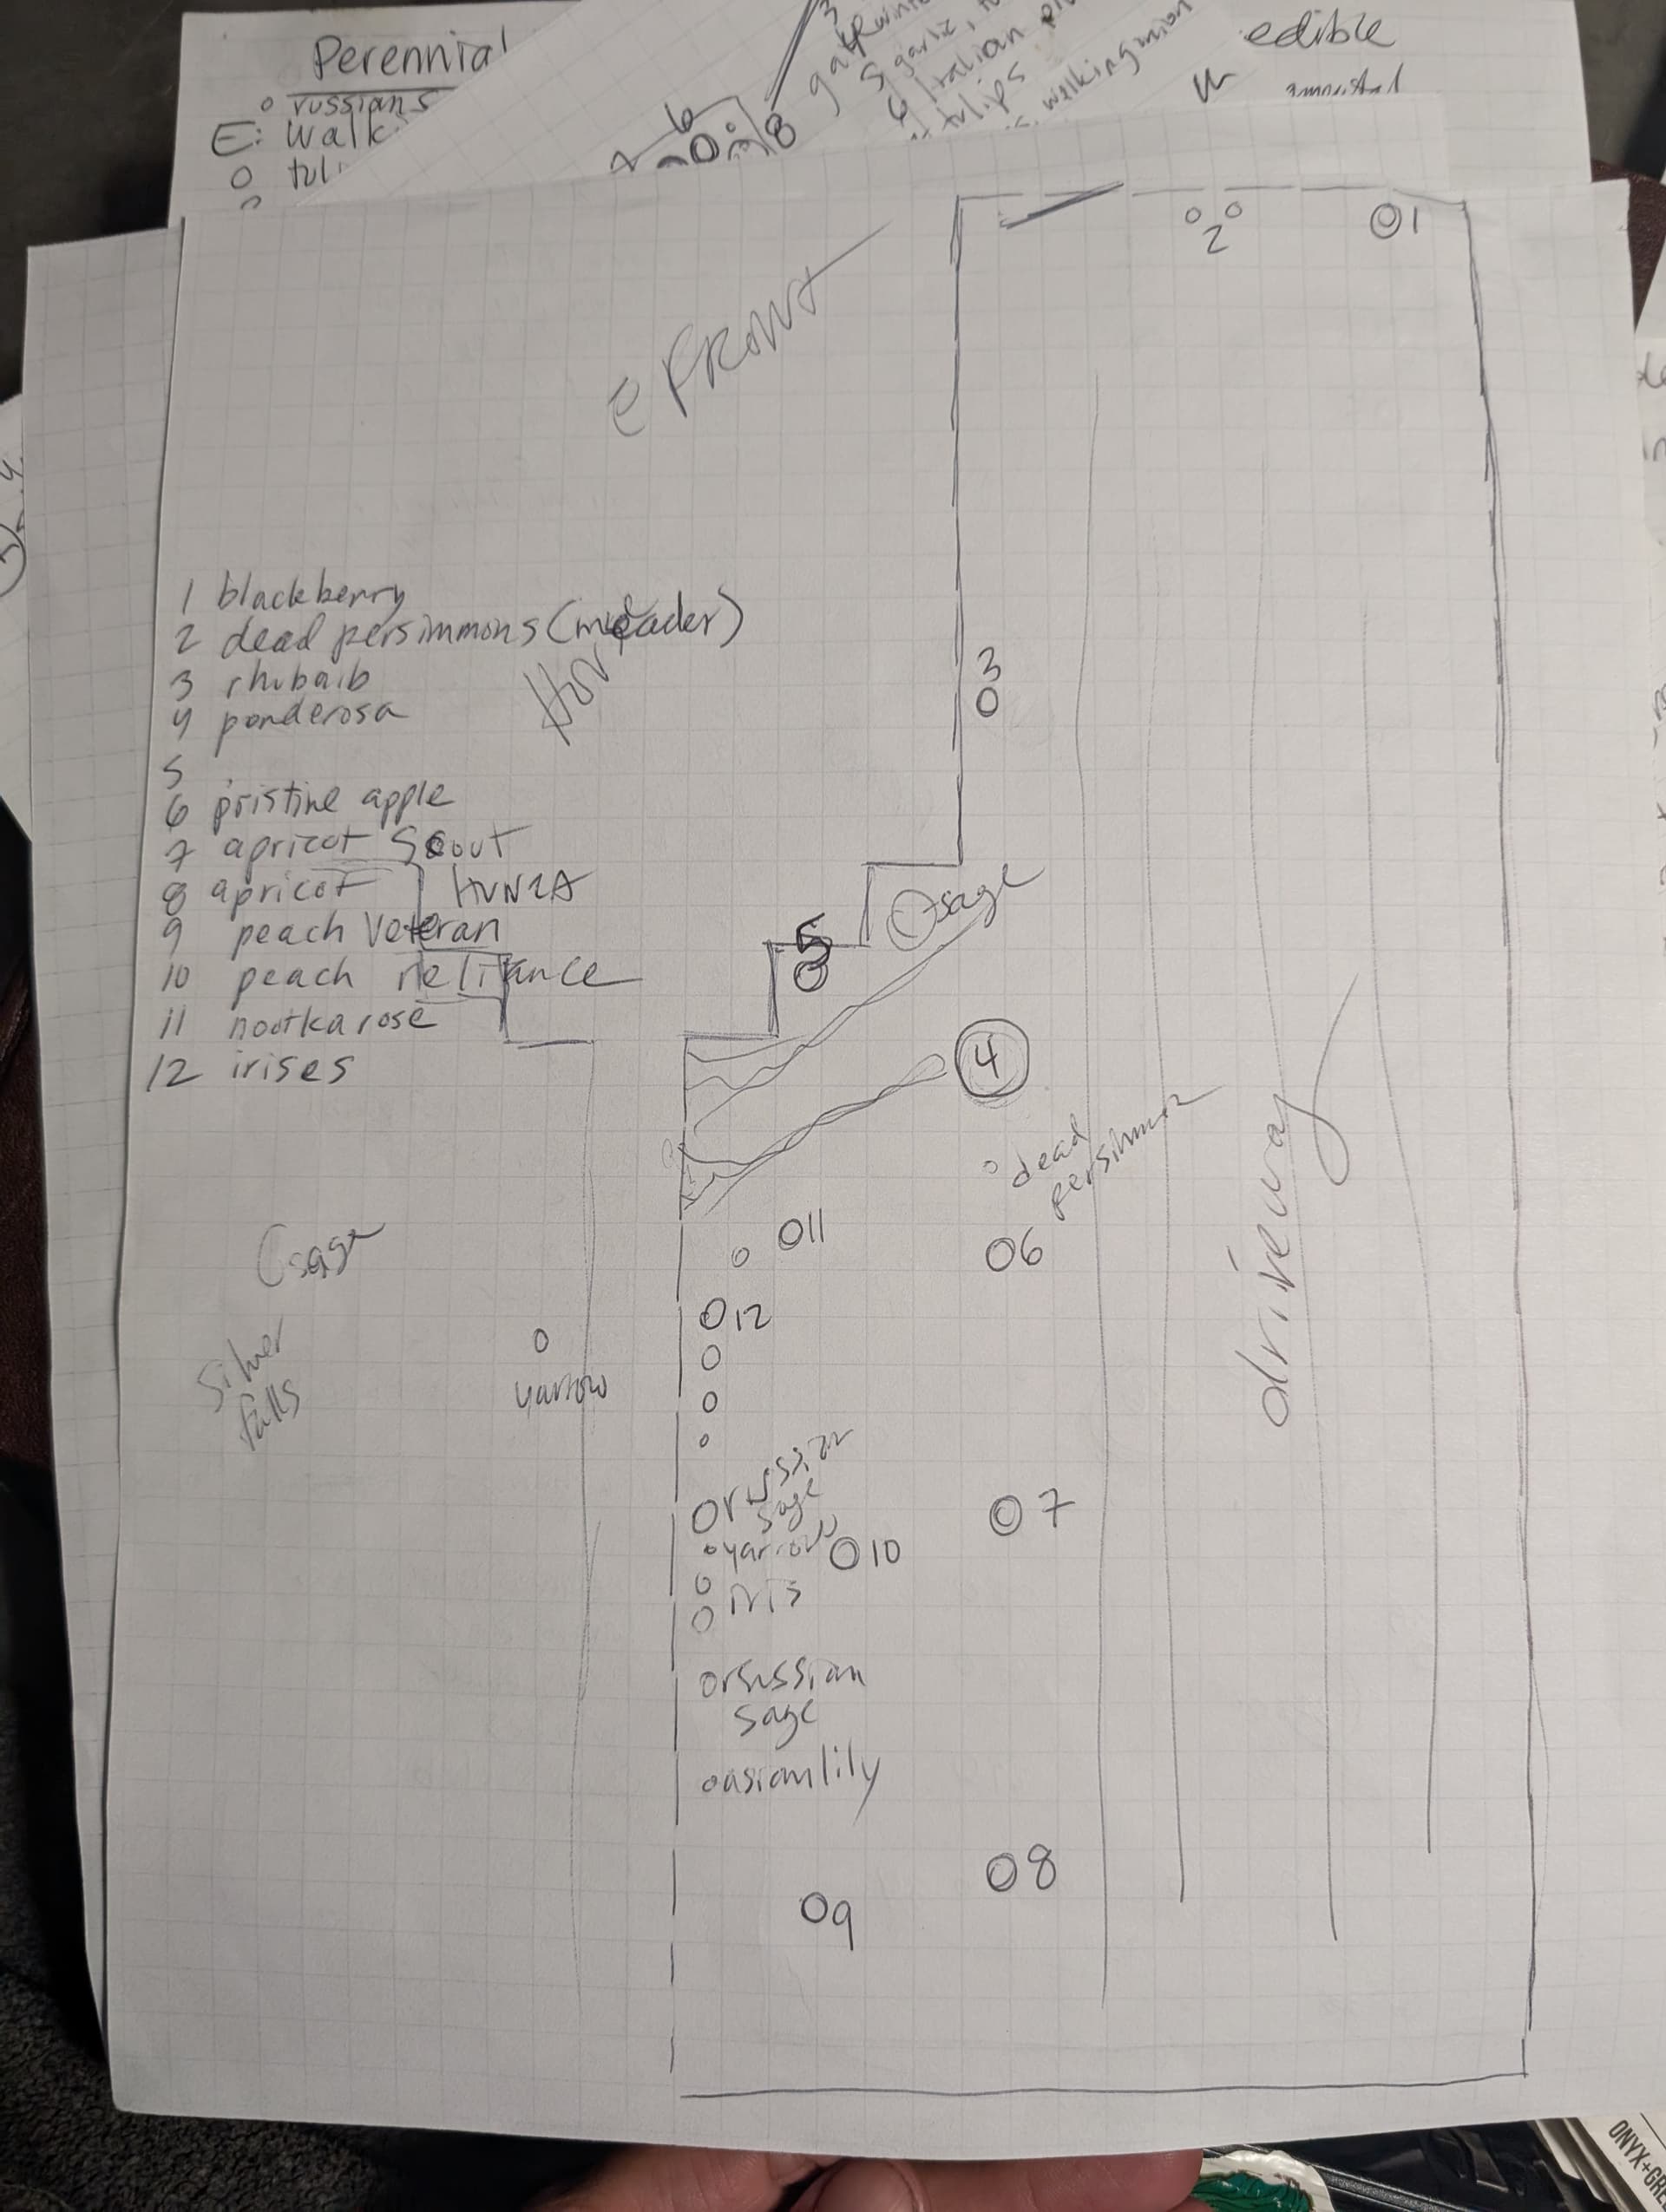 Perennial
o russians
E: walk
O tul
6
8
5 garlic,
6 Italian
tulips
walking onion
edible
E FRONT
2
1
1 blackberry
2 dead persimmons (meader)
3 rhubarb
4 ponderosa
5
6 pristine apple
7 apricot Scout
8 apricot HUNZA
9 peach Veteran
10 peach reliance
11 nootka rose
12 irises
3
Osage
5
4
dead
persimmon
driveway
11
6
12
sage
Silver
falls
yarrow
russian
sage
yarrow
10
7
iris
russian
sage
asian lily
8
9
ONYX+GRE